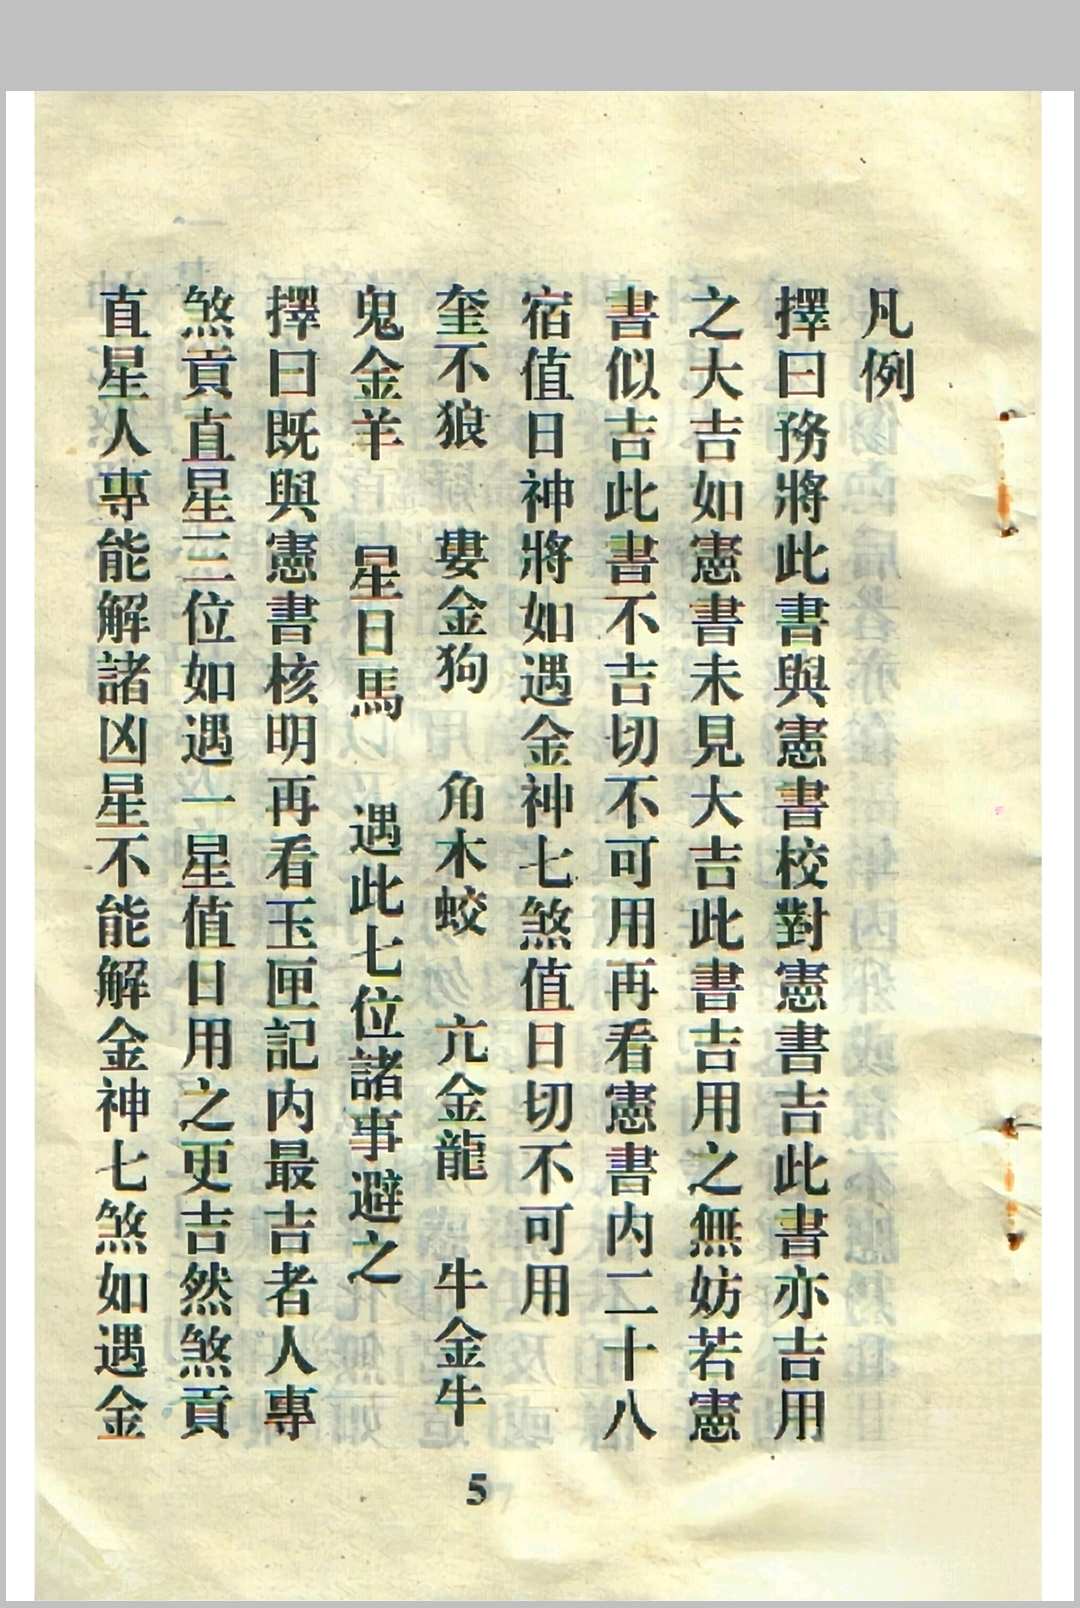 凡例
擇日務將此書與憲書校對憲書吉此書亦吉用
之大吉如憲書未見大吉此書吉用之無妨若憲
書似吉此書不吉切不可用再看憲書内二十八
宿值日神將如遇金神七煞值日切不可用
奎木狼　婁金狗　角木蛟　亢金龍　牛金牛
鬼金羊　星日馬　遇此七位諸事避之
擇日既與憲書核明再看玉匣記内最吉者人專
煞貢直星三位如遇一星值日用之更吉然煞貢
直星人專能解諸凶星不能解金神七煞如遇金
5